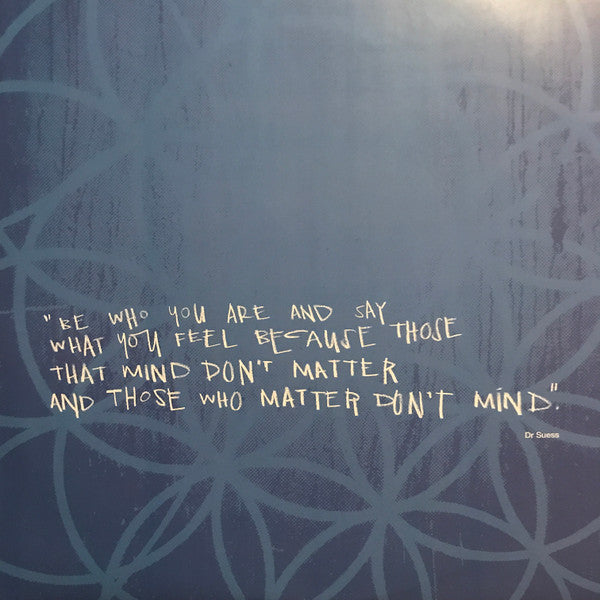 "BE WHO YOU ARE AND SAY
WHAT YOU FEEL BECAUSE THOSE
THAT MIND DON'T MATTER
AND THOSE WHO MATTER DON'T MIND".
Dr Suess